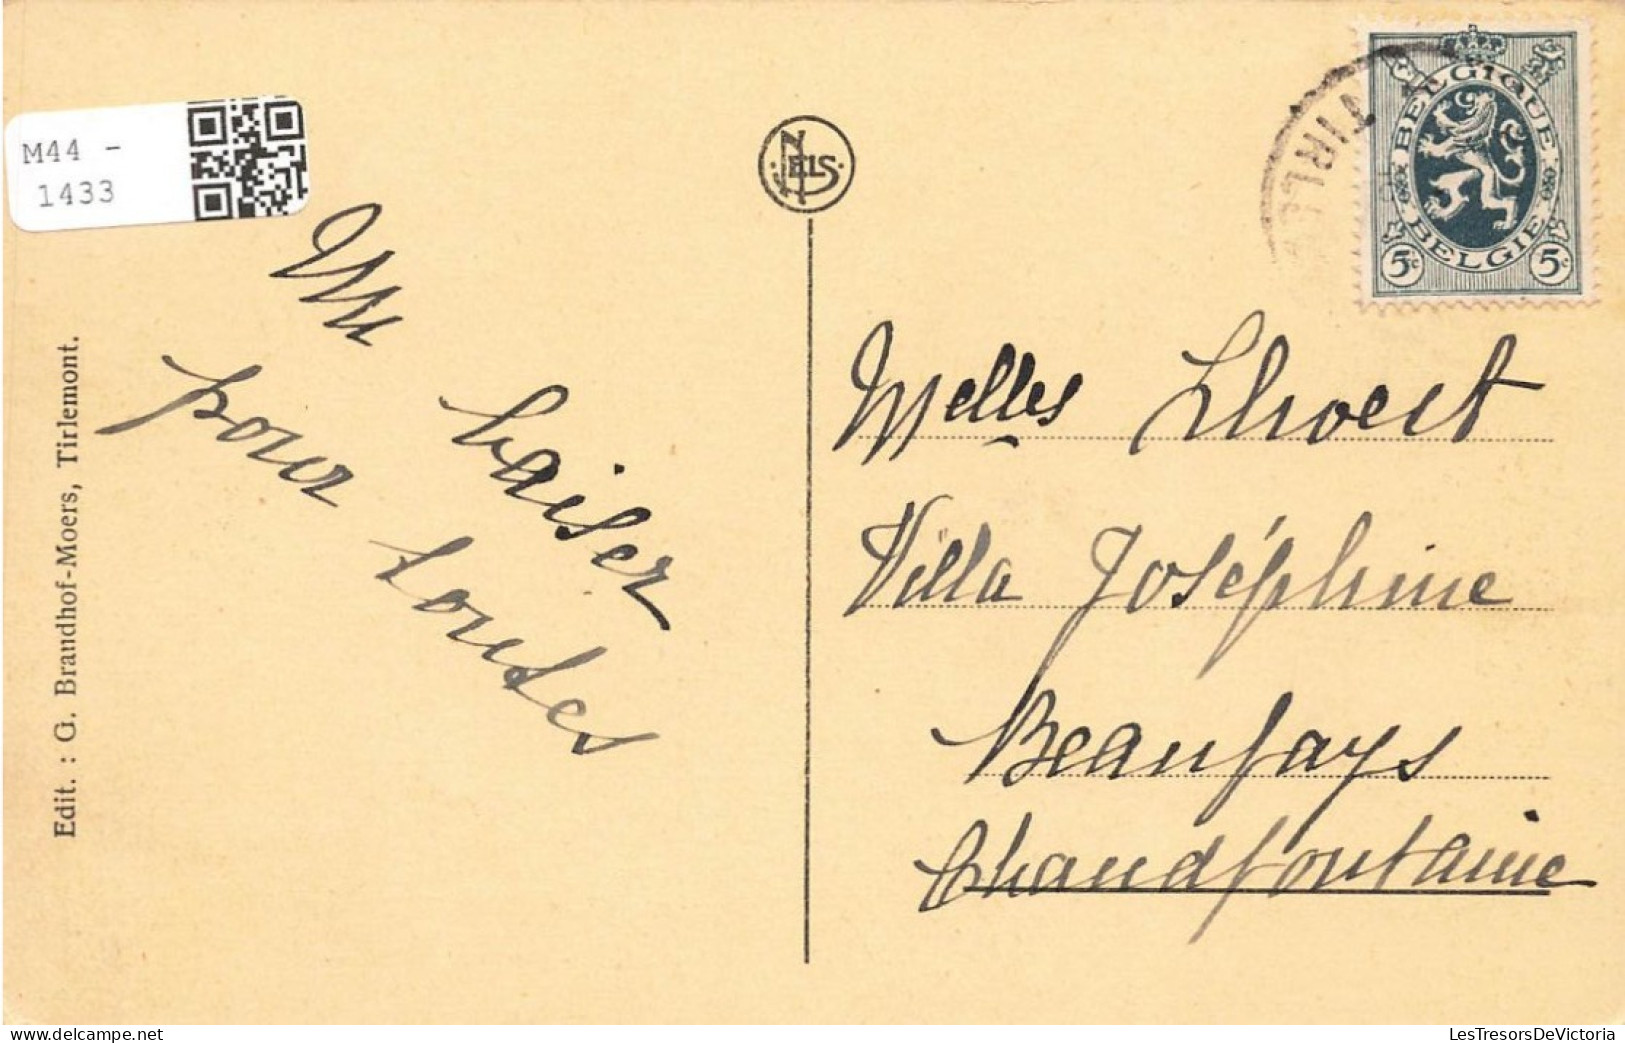 M44 -
1433
NELS
TIRL
BELGIQUE
BELGIE
5c 5c
Un baiser
pour toutes
Melles Lhoest
Villa Joséphine
Beaufays
Chaudfontaine
Edit. : G. Brandhof-Moers, Tirlemont.
www.delcampe.net
LesTresorsDeVictoria